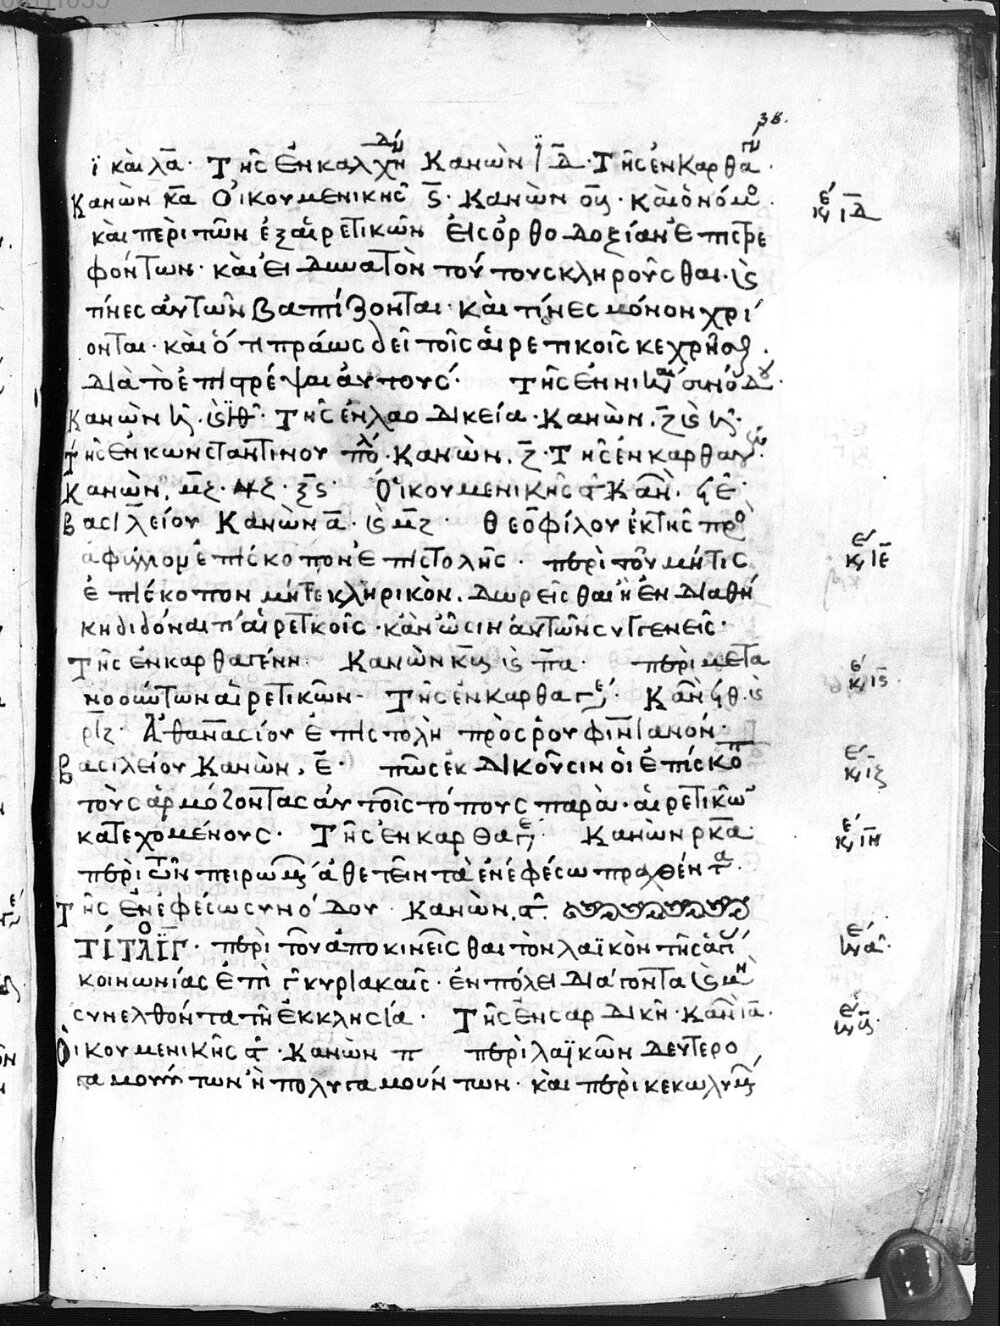 38.
ϊ καὶ λα. Τῆς ἐν καλχηδ Κανὼν ιδ. Τῆς ἐν Καρθαγ.
Κανὼν κα Οἰκουμενικῆς ς. Κανὼν οβ. καὶ ὁ νόμο
κε ιδ
καὶ περὶ τῶν ἐξ αἱρετικῶν εἰς ὀρθοδοξίαν ἐπιστρε
φόντων. καὶ εἰ δυνατὸν τούτους κληροῦσθαι. καὶ
τίνες αὐτῶν βαπτίζονται. καὶ τίνες μόνον χρί
ονται. καὶ ὅτι πράως δεῖ τοῖς αἱρετικοῖς κεχρῆσθαι.
διὰ τὸ ἐπιστρέψαι αὐτούς. Τῆς ἐν νικαί συνόδου
Κανὼν η. καὶ ιθ. Τῆς ἐν λαοδικεία. Κανὼν. ζ καὶ η.
Τῆς ἐν κωνσταντινουπολ. Κανὼν. ζ. Τῆς ἐν καρθαγ.
Κανὼν. μζ. νζ. ξς. Οἰκουμενικῆς ς Καν. ϟε.
Βασιλείου Κανὼν α. καὶ μζ. θεοφίλου ἐκ τῆς πρὸ
ἀφύγγιον ἐπίσκοπον ἐπιστολῆς. περὶ τοῦ μή τις
κε ιε
ἐπίσκοπον μήτε κληρικὸν. δωρεῖσθαι ἢ ἐν διαθή
κη διδόναι τι αἱρετικοῖς. κἂν ὦσιν αὐτῶν συγγενεῖς.
Τῆς ἐν καρθαγένη. Κανὼν κβ καὶ πα. περὶ μετα
κε ις
νοούντων αἱρετικῶν. Τῆς ἐν καρθαγε. Καν ϟθ. καὶ
ριζ. Ἀθανασίου ἐπιστολὴ πρὸς ῥουφινιανόν.
Βασιλείου Κανὼν. ε. πῶς ἐκδικοῦσιν οἱ ἐπίσκοπ
κε ιζ
τοὺς ἁρμόζοντας αὐτοῖς τόπους παρὰ. αἱρετικῶ
κατεχομένους. Τῆς ἐν καρθαγε. Κανὼν ρκα.
κε ιη
περὶ τῶν πειρωμ ἀθετεῖν τὰ ἐν ἐφέσω πραχθέντα.
Τῆς ἐν ἐφέσω συνόδου. Κανὼν. α.
ΤΊΤΛΟ ΙΓ. περὶ τοῦ ἀποκινεῖσθαι τὸν λαϊκὸν τῆς ἁγί
κε α.
κοινωνίας ἐπὶ γ κυριακαῖς. ἐν πόλει διάγοντα καὶ μὴ
συνελθόντα τῆ ἐκκλησία. Τῆς ἐν σαρδικῆ. Καν ια.
Οἰκουμενικῆς ς. Κανὼν π περὶ λαϊκῶν δευτερο
κε β.
γαμούντων ἢ πολυγαμούντων. καὶ περὶ κεκωλυμ